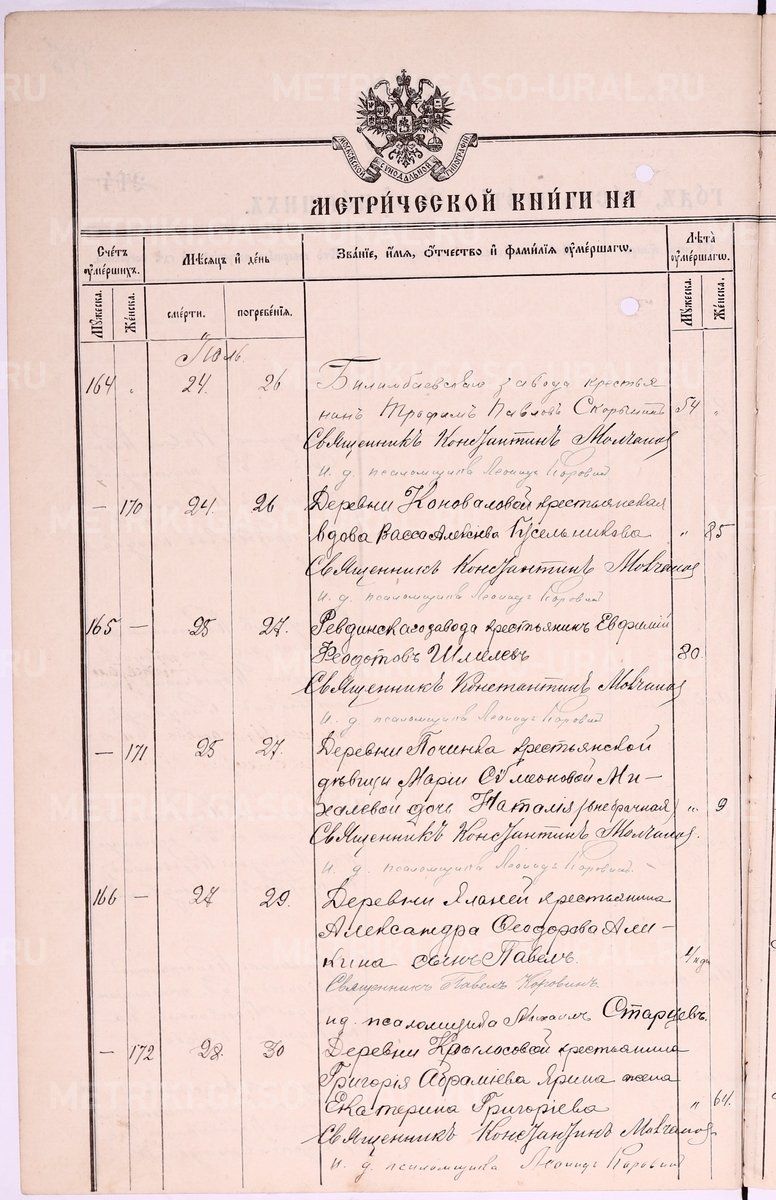 METRIKI.GASO-URAL.RU
МОСКОВСКОЙ СѴНОДАЛЬНОЙ ТИПОГРАФІИ
МЕТРИ́ЧЕСКОЙ КНИ́ГИ НА
Сче́тъ оуме́ршихъ.
Мѣ́сяцъ и де́нь
Зва́ніе, и́мя, о́тчество и фами́лія оуме́ршагѡ.
Лѣ́та оуме́ршагѡ.
Му́жеска. Же́нска.
сме́рти. погребе́нія.
Му́жеска. Же́нска.
Іюль
164 " 24 26 Билимбаевскаго завода крестья
нинъ Трофимъ Павловъ 54 "
Священникъ Константинъ Молчановъ
И. д. псаломщика Леонидъ Коровинъ
— 170 24. 26 Деревни Коноваловой крестьянская
вдова Васса Алексіева Кусельникова " 85
Священникъ Константинъ Молчановъ
И. д. псаломщика Леонидъ Коровинъ
165 — 25 27. Ревдинскаго завода крестьянинъ Евфимій
Ѳеодотовъ Шмелевъ 80.
Священникъ Константинъ Молчановъ
И. д. псаломщика Леонидъ Коровинъ
— 171 25 27. Деревни Починка крестьянской
дѣвицы Маріи Сѵмеоновой Ми-
халевой дочь Наталія (внебрачная) " 9
Священникъ Константинъ Молчановъ.
И. д. псаломщика Леонидъ Коровинъ
166 — 27 29. Деревни крестьянина
Александра Ѳеодорова Али-
кина сынъ Павелъ.
Священникъ Павелъ Коровинъ.
ид. псаломщика Михаилъ Старцевъ.
— 172 28. 30 Деревни Крылосовой крестьянина
Григорія Авраміева Ярина жена
Екатерина Григоріева " 64.
Священникъ Константинъ Молчановъ
И. д. псаломщика Леонидъ Коровинъ